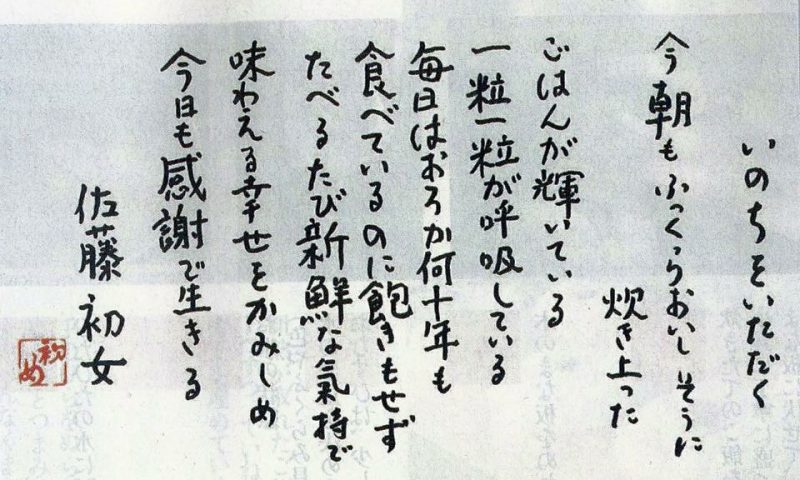 いのちをいただく
今朝もふっくらおいしそうに
炊き上った
ごはんが輝いている
一粒一粒が呼吸している
毎日はおろか何十年も
食べているのに飽きもせず
たべるたび新鮮な氣持で
味わえる幸せをかみしめ
今日も感謝で生きる
佐藤初女
初め